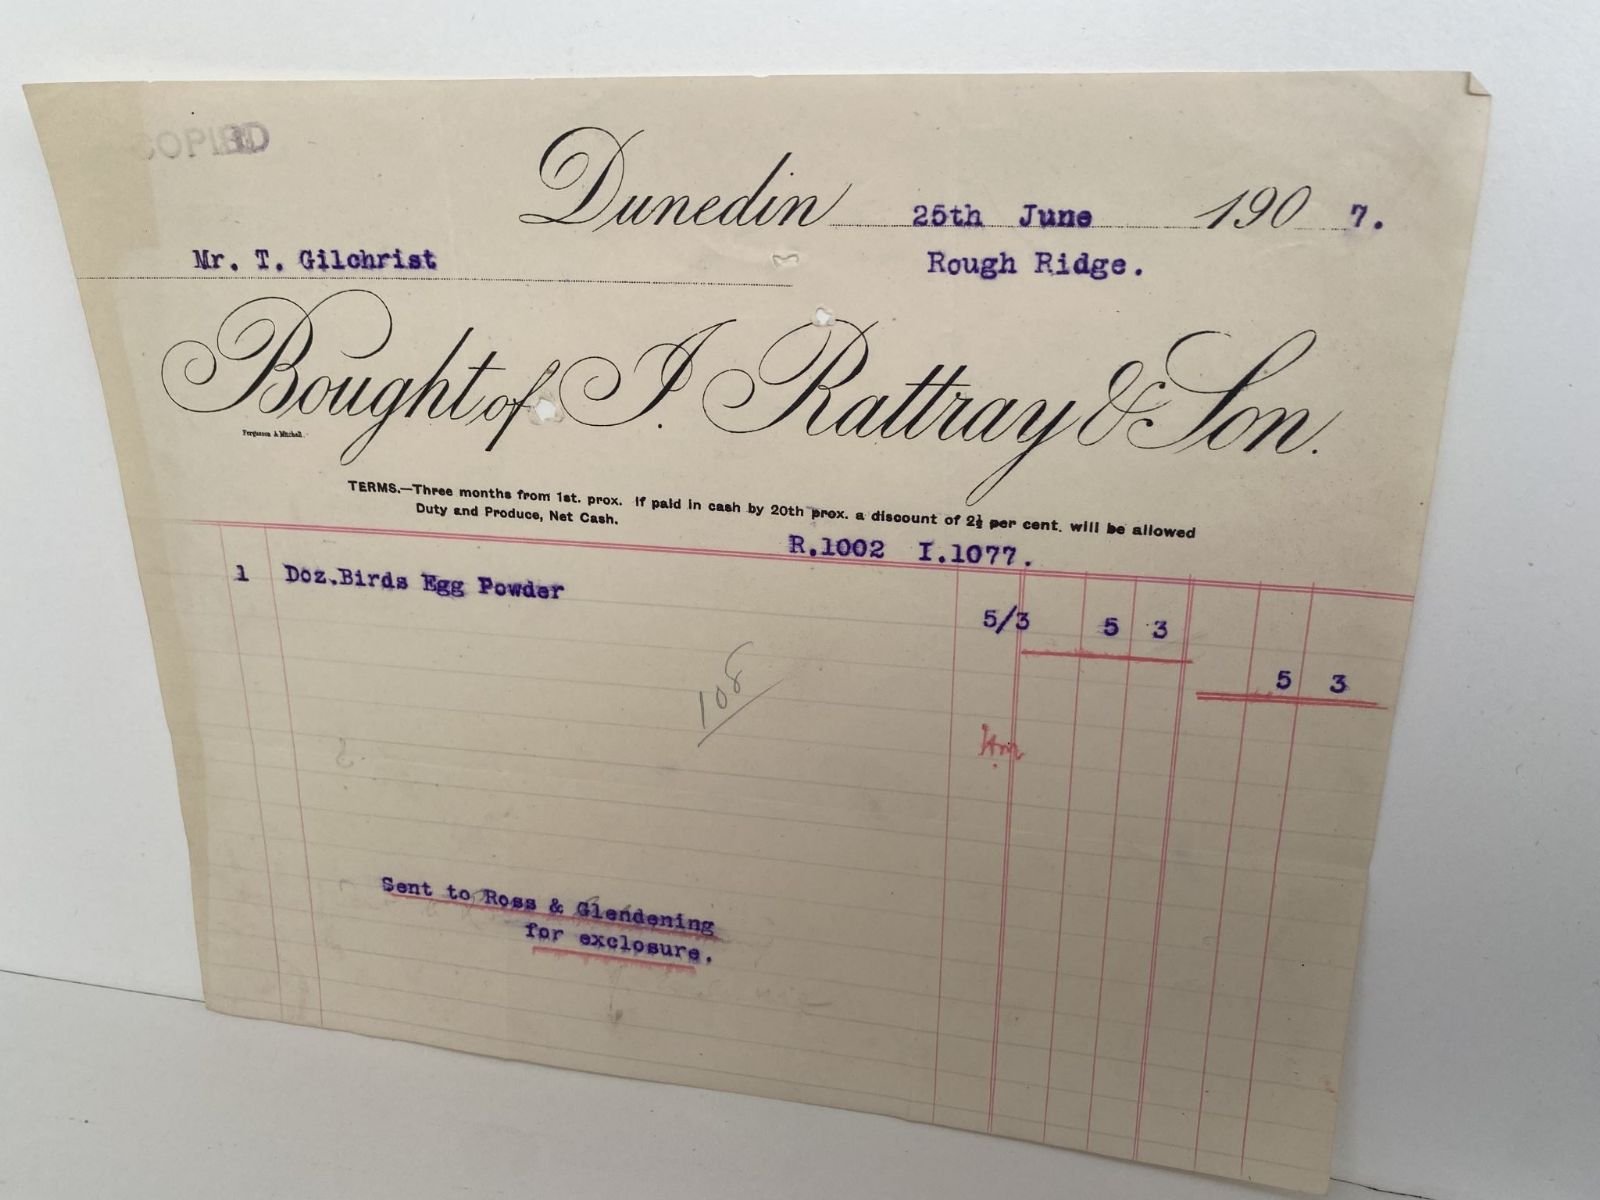 COPIED
Dunedin 25th June 1907.
Mr. T. Gilchrist Rough Ridge.
Bought of J. Rattray & Son.
Fergusson & Mitchell.
TERMS.—Three months from 1st. prox. If paid in cash by 20th prox. a discount of 2½ per cent. will be allowed
Duty and Produce, Net Cash.
R.1002 I.1077.
1 Doz.Birds Egg Powder 5/3 5 3
5 3
108
Sent to Ross & Glendening
for exclosure.